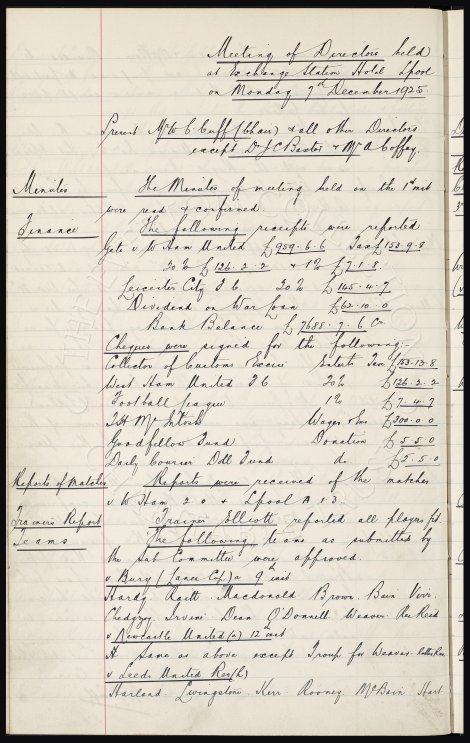 Meeting of Directors held
at Exchange Station Hotel Lpool
on Monday 7th December 1925
Present Mr W C Cuff (Chair) & all other Directors
except Dr J C Baxter & Mr A Coffey.
Minutes The Minutes of meeting held on the 1st inst
were read & confirmed.
Finance The following receipts were reported
Gate v W Ham United £959.6.6 Tax £153.9.8
20% £126.2.2 & 1% £7.1.8
Leicester City F C 20% £145.4.7
Dividend on War Loan £62.10.0
Bank Balance £7688.7.6 Cr
Cheques were signed for the following:-
Collector of Customs & Excise Entertt Tax £153.13.8
West Ham United F C 20% £126.2.2
Football League 1% £7.4.7
T H McIntosh Wages & Ins £300.0.0
Goodfellow Fund Donation £5.5.0
Daily Courier Doll Fund do £5.5.0
Reports of Matches Reports were received of the matches
v W Ham 2 0 & Lpool A 1 3.
Trainers Report Trainer Elliott reported all players fit.
Teams The following teams as submitted by
the Sub Committee were approved.
v Bury (Lancs Cup) a 9th inst
Hardy. Raitt. Macdonald Brown. Bain Virr.
Chedgzoy Irvine Dean O'Donnell Weaver. Res Reid
v Newcastle United (a) 12th inst
A same as above except Troup for Weaver.
v Leeds United Res (h)
Harland. Livingstone. Kerr Rooney McBain Hart